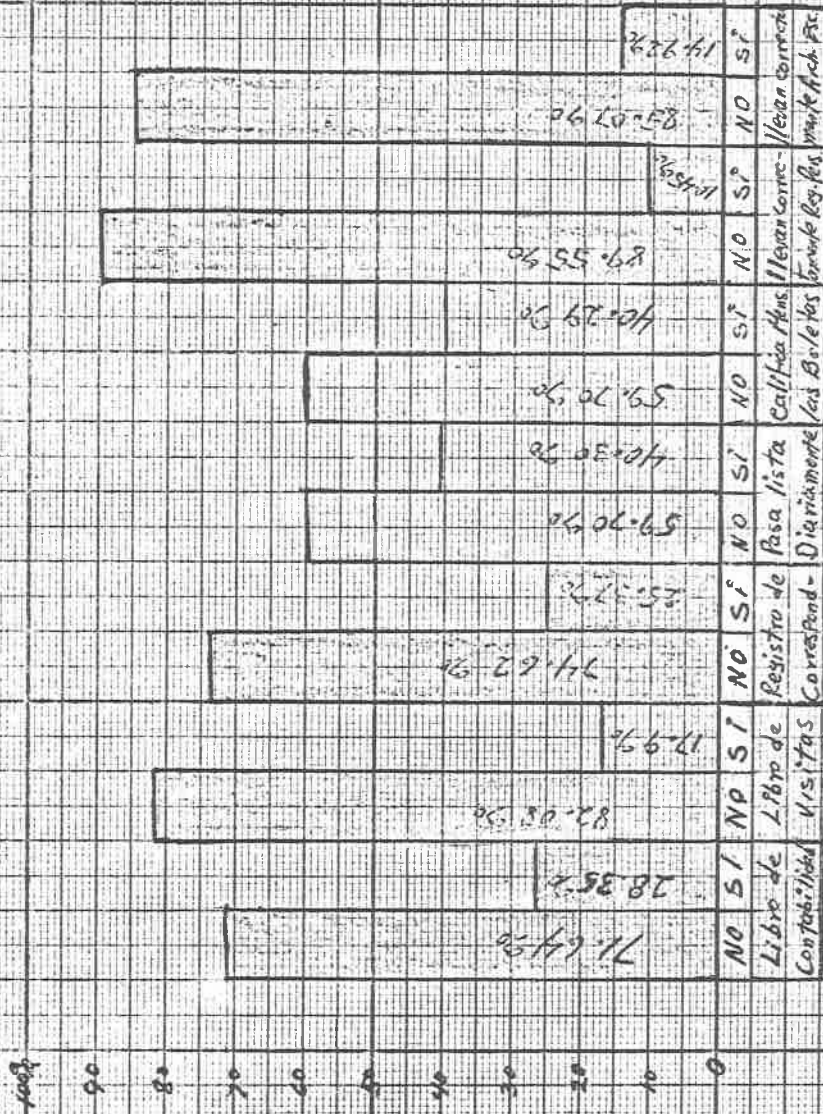 100%
90
80
70
60
50
40
30
20
10
0
71.64%
28.35%
82.08%
17.9%
74.62%
25.37%
59.70%
40.30%
59.70%
40.29%
89.55%
10.45%
85.07%
14.92%
NO SÍ NO SÍ NO SÍ NO SÍ NO SÍ NO SÍ NO SÍ
Libro de
Contabilidad
Libro de
Visitas
Registro de
Correspond-
Pasa lista
Diariamente
Califica Mens.
las Boletas
llevan Correc-
tamente Reg. Pers
llevan correcta
mente Arch. Esc.